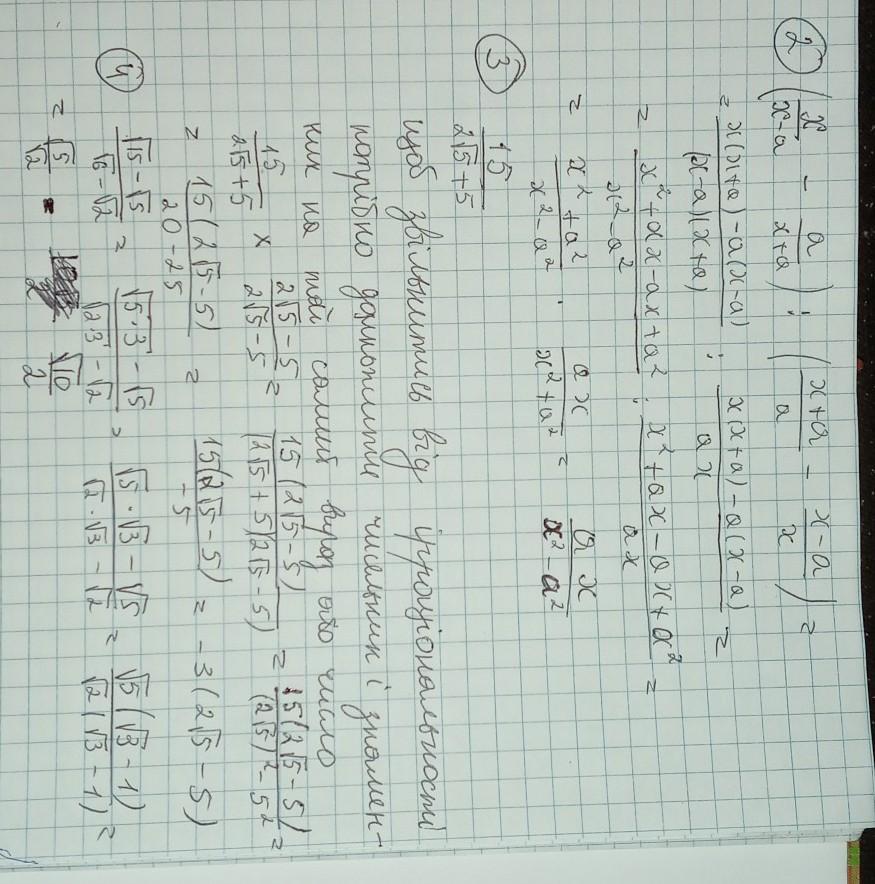 ② (x/(x-a) - a/(x+a)) : ((x+a)/a - (x-a)/x) =
= (x(x+a) - a(x-a))/((x-a)(x+a)) : (x(x+a) - a(x-a))/(ax) =
= (x² + ax - ax + a²)/(x² - a²) : (x² + ax - ax + a²)/(ax) =
= (x² + a²)/(x² - a²) · (ax)/(x² + a²) = (ax)/(x² - a²)
③ 15/(2√5 + 5)
щоб звільнитись від ірраціональності
потрібно домножити чисельник і знамен-
ник на той самий вираз або число
15/(2√5 + 5) × (2√5 - 5)/(2√5 - 5) = 15(2√5 - 5)/((2√5 + 5)(2√5 - 5)) = 15(2√5 - 5)/((2√5)² - 5²) =
= 15(2√5 - 5)/(20 - 25) = 15(2√5 - 5)/(-5) = -3(2√5 - 5)
④ (√15 - √5)/(√6 - √2) = (√5·3 - √5)/(√2·3 - √2) = (√5·√3 - √5)/(√2·√3 - √2) = √5(√3 - 1)/(√2(√3 - 1)) =
= √5/√2 = √10/2